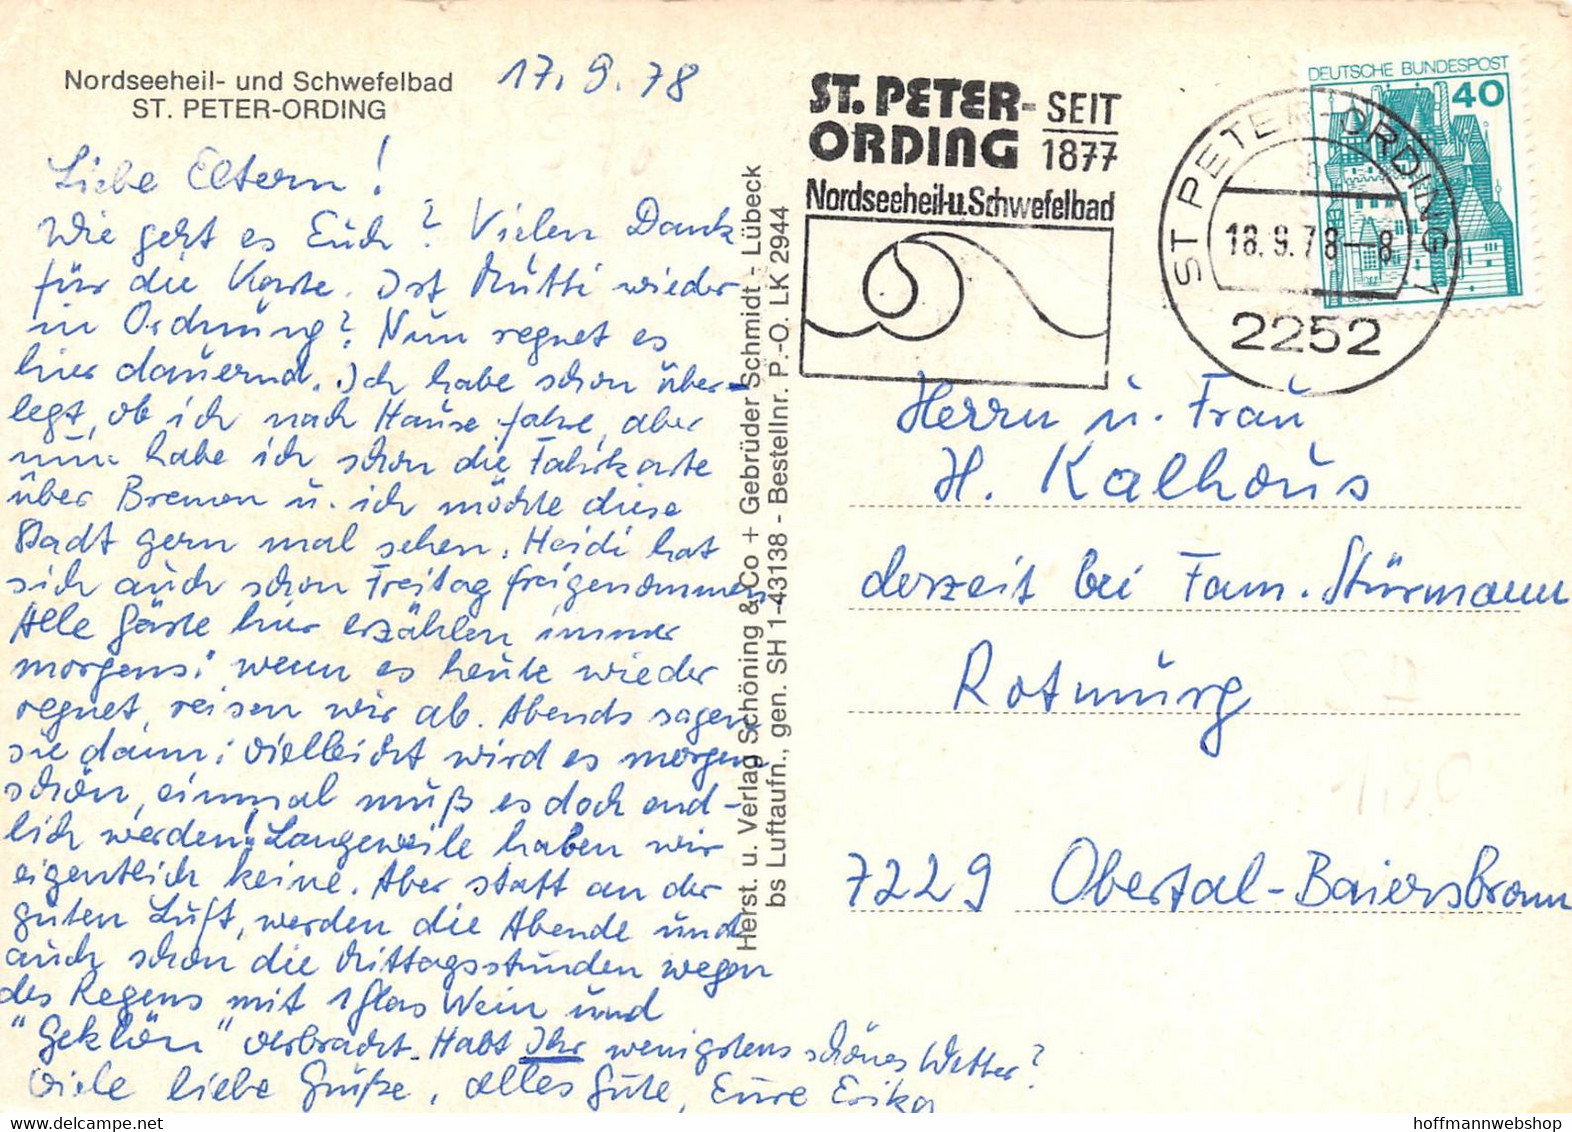 Nordseeheil- und Schwefelbad
ST. PETER-ORDING
17.9.78
Liebe Eltern!
Wie geht es Euch? Vielen Dank
für die Karte. Ist Mutti wieder
in Ordnung? Nun regnet es
hier dauernd. Ich habe schon über-
legt, ob ich nach Hause fahre, aber
nun habe ich schon die Fahrkarte
über Bremen u. ich möchte diese
Stadt gern mal sehen. Heidi hat
sich auch schon Freitag freigenommen.
Alle Gäste hier erzählen immer
morgens: wenn es heute wieder
regnet, reisen wir ab. Abends sagen
sie dann: vielleicht wird es morgen
schön, einmal muß es doch end-
lich werden! Langeweile haben wir
eigentlich keine. Aber statt an der
guten Luft, werden die Abende und
auch schon die Mittagsstunden wegen
des Regens mit 1 Glas Wein und
"Geklön" verbracht. Habt Ihr wenigstens schönes Wetter?
Viele liebe Grüße, alles Gute, Eure Erika
Herst. u. Verlag Schöning & Co + Gebrüder Schmidt - Lübeck
bs Luftaufn., gen. SH 1-43138 - Bestellnr. P.-O. LK 2944
ST. PETER-
ORDING
SEIT
1877
Nordseeheil-u.Schwefelbad
ST PETER-ORDING 1
18.9.78-8
2252
DEUTSCHE BUNDESPOST
40
Herrn u. Frau
H. Kalhous
derzeit bei Fam. Stürmann
Rotmurg
7229 Obertal-Baiersbronn
hoffmannwebshop